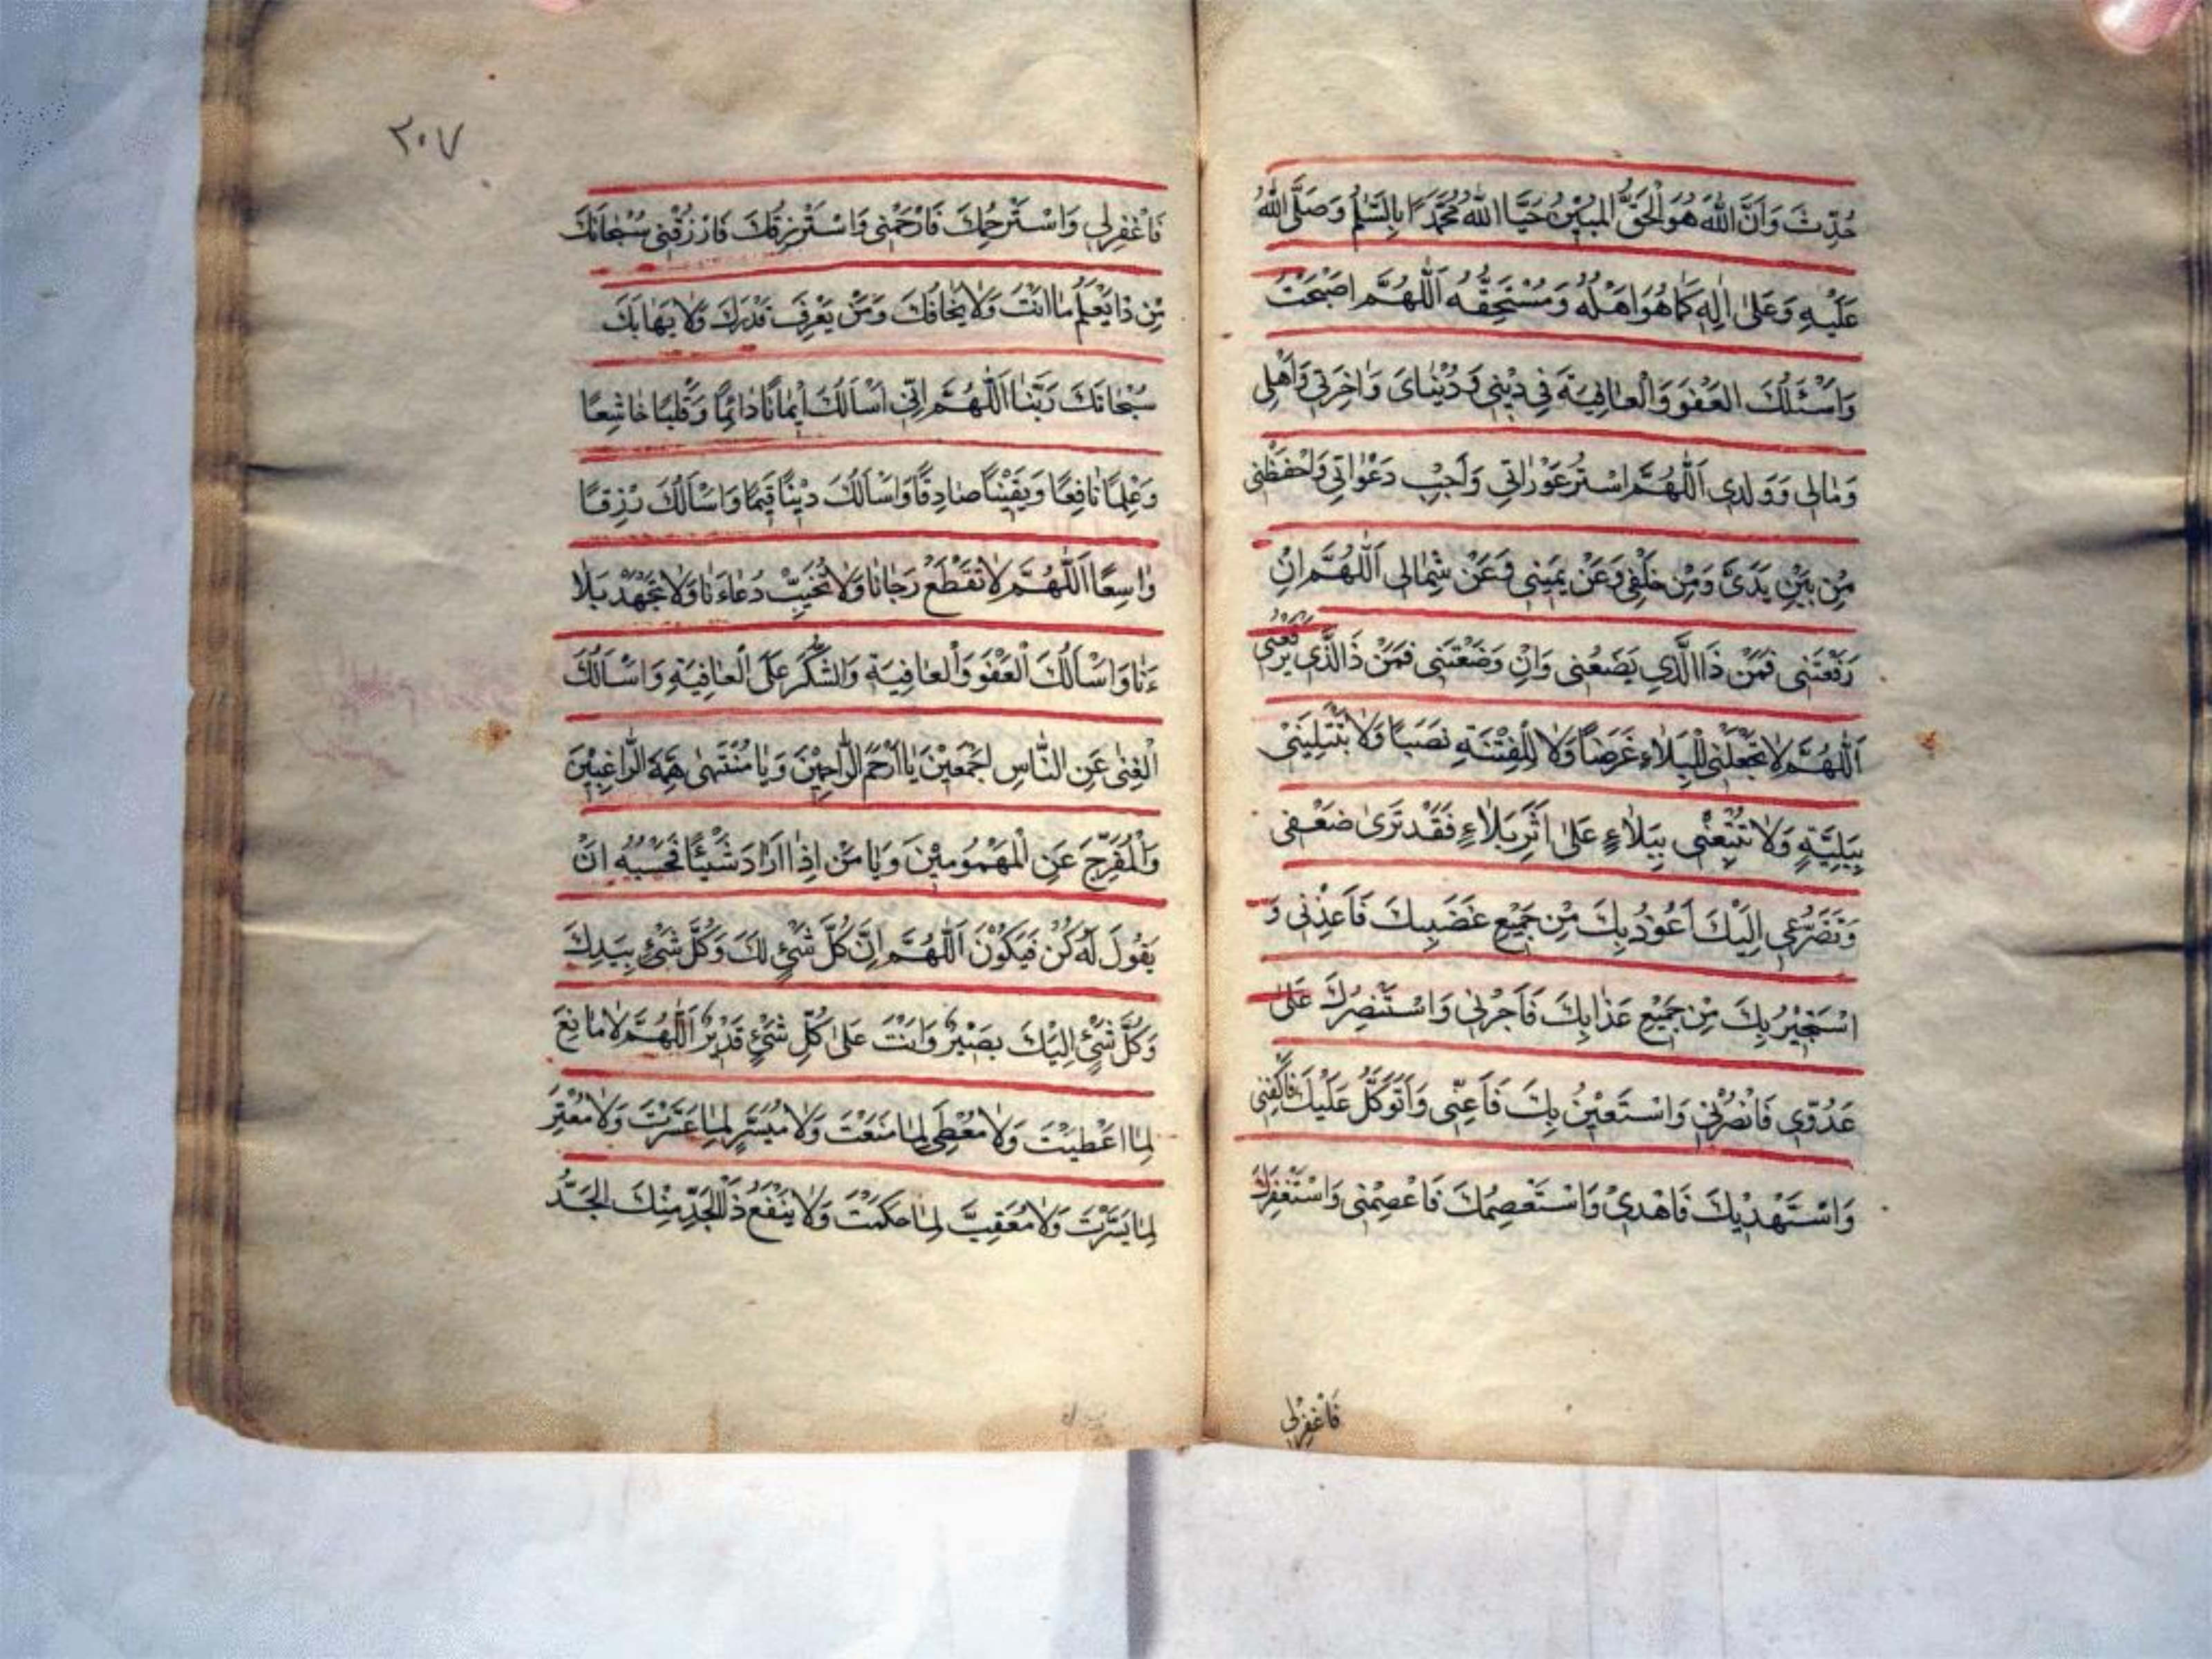 حُدِّثَ وَاَنَّ اللّٰهَ هُوَ الْحَقُّ الْمُبِيْنُ حَيَّا اللّٰهُ مُحَمَّدًا بِالسَّلٰمِ وَصَلَّى اللّٰهُ
عَلَيْهِ وَعَلٰى اٰلِهٖ كَمَا هُوَ اَهْلُهُ وَمُسْتَحِقُّهُ اَللّٰهُمَّ اصْبَحْتُ
وَاَسْئَلُكَ الْعَفْوَ وَالْعَافِيَةَ فِي دِيْنِي وَدُنْيَايَ وَاٰخِرَتِي وَاَهْلِي
وَمَالِي وَوَلَدِي اَللّٰهُمَّ اسْتُرْ عَوْرَاتِي وَاَجِبْ دَعْوَاتِي وَاحْفَظْنِي
مِنْ بَيْنِ يَدَيَّ وَمِنْ خَلْفِي وَعَنْ يَمِيْنِي وَعَنْ شِمَالِي اَللّٰهُمَّ اِنْ
رَفَعْتَنِي فَمَنْ ذَا الَّذِي يَضَعُنِي وَاِنْ وَضَعْتَنِي فَمَنْ ذَالَّذِي يَرْفَعُنِي
اَللّٰهُمَّ لَا تَجْعَلْنِي لِلْبَلَاءِ غَرَضًا وَلَا لِلْفِتْنَةِ نَصَبًا وَلَا تَبْتَلِيَنِّي
بِبَلِيَّةٍ وَلَا تُتْبِعْنِي بِبَلَاءٍ عَلٰى اَثَرِ بَلَاءٍ فَقَدْ تَرٰى ضَعْفِي
وَتَضَرُّعِي اِلَيْكَ اَعُوْذُ بِكَ مِنْ جَمِيْعِ غَضَبِكَ فَاَعِذْنِي وَ
اَسْتَجِيْرُ بِكَ مِنْ جَمِيْعِ عَذَابِكَ فَاَجِرْنِي وَاَسْتَنْصِرُكَ عَلٰى
عَدُوِّي فَانْصُرْنِي وَاَسْتَعِيْنُ بِكَ فَاَعِنِّي وَاَتَوَكَّلُ عَلَيْكَ فَاكْفِنِي
وَاَسْتَهْدِيْكَ فَاهْدِنِي وَاَسْتَعْصِمُكَ فَاعْصِمْنِي وَاَسْتَغْفِرُكَ
فَاغْفِرْلِي
٣٠٧
فَاغْفِرْلِي وَاَسْتَرْحِمُكَ فَارْحَمْنِي وَاَسْتَرْزِقُكَ فَارْزُقْنِي سُبْحَانَكَ
مَنْ ذَا يَعْلَمُ مَا اَنْتَ وَلَا يَخَافُكَ وَمَنْ يَعْرِفُ قَدْرَكَ وَلَا يَهَابُكَ
سُبْحَانَكَ رَبَّنَا اَللّٰهُمَّ اِنِّي اَسْاَلُكَ اِيْمَانًا دَائِمًا وَقَلْبًا خَاشِعًا
وَعِلْمًا نَافِعًا وَيَقِيْنًا صَادِقًا وَاَسْاَلُكَ دِيْنًا قَيِّمًا وَاَسْاَلُكَ رِزْقًا
وَاسِعًا اَللّٰهُمَّ لَا تَقْطَعْ رَجَانَا وَلَا تُخَيِّبْ دُعَاءَنَا وَلَا تُجْهِدْ بَلَا
ءَنَا وَاَسْاَلُكَ الْعَفْوَ وَالْعَافِيَةَ وَالشُّكْرَ عَلَى الْعَافِيَةِ وَاَسْاَلُكَ
الْغِنٰى عَنِ النَّاسِ اَجْمَعِيْنَ يَا اَرْحَمَ الرَّاحِمِيْنَ وَيَا مُنْتَهٰى هِمَّةِ الرَّاغِبِيْنَ
وَالْمُفَرِّجَ عَنِ الْمَهْمُوْمِيْنَ وَيَا مَنْ اِذَا اَرَادَ شَيْئًا فَحَسْبُهُ اَنْ
يَقُوْلَ لَهُ كُنْ فَيَكُوْنَ اَللّٰهُمَّ اِنَّ كُلَّ شَيْءٍ لَكَ وَكُلَّ شَيْءٍ بِيَدِكَ
وَكُلَّ شَيْءٍ اِلَيْكَ بَصِيْرٌ وَاَنْتَ عَلٰى كُلِّ شَيْءٍ قَدِيْرٌ اَللّٰهُمَّ لَا مَانِعَ
لِمَا اَعْطَيْتَ وَلَا مُعْطِيَ لِمَا مَنَعْتَ وَلَا مُيَسِّرَ لِمَا عَسَّرْتَ وَلَا مُعَسِّرَ
لِمَا يَسَّرْتَ وَلَا مُعَقِّبَ لِمَا حَكَمْتَ وَلَا يَنْفَعُ ذَالْجَدِّ مِنْكَ الْجَدُّ